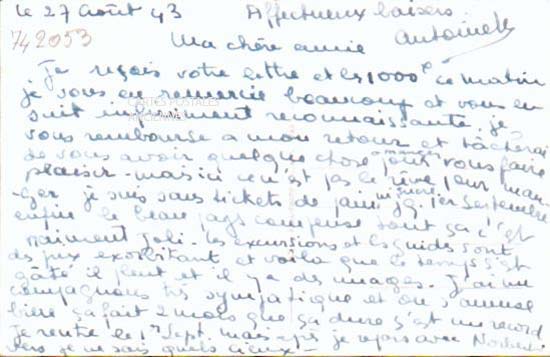 le 27 Août 43 Affectueux baisers
742053 Antoinette
Ma chère amie
Je reçois votre lettre et les 1000 ce matin
je vous en remercie beaucoup et vous en
suit infiniment reconnaissante. je
CARTES POSTALES
vous rembourse a mon retour et tâcherai
de vous avoir quelque chose pour vous faire
plaisir - mais ici ce n'est pas le rêve pour man-
ger je suis sans tickets de pain ni sucre jq. 1er Septembre
enfin le beau pays compense tout ça c'est
vraiment joli. les excursions et les guides sont
des prix exorbitant et voilà que le temps s'est
gâté il pleut et il y a des nuages. J'ai un
compagnons très sympatique et on s'amuse
bien ça fait 2 mois que ça dure c'est un record
Je rentre le 1er Sept. mais je repars avec
vers je ne sais quels cieux -